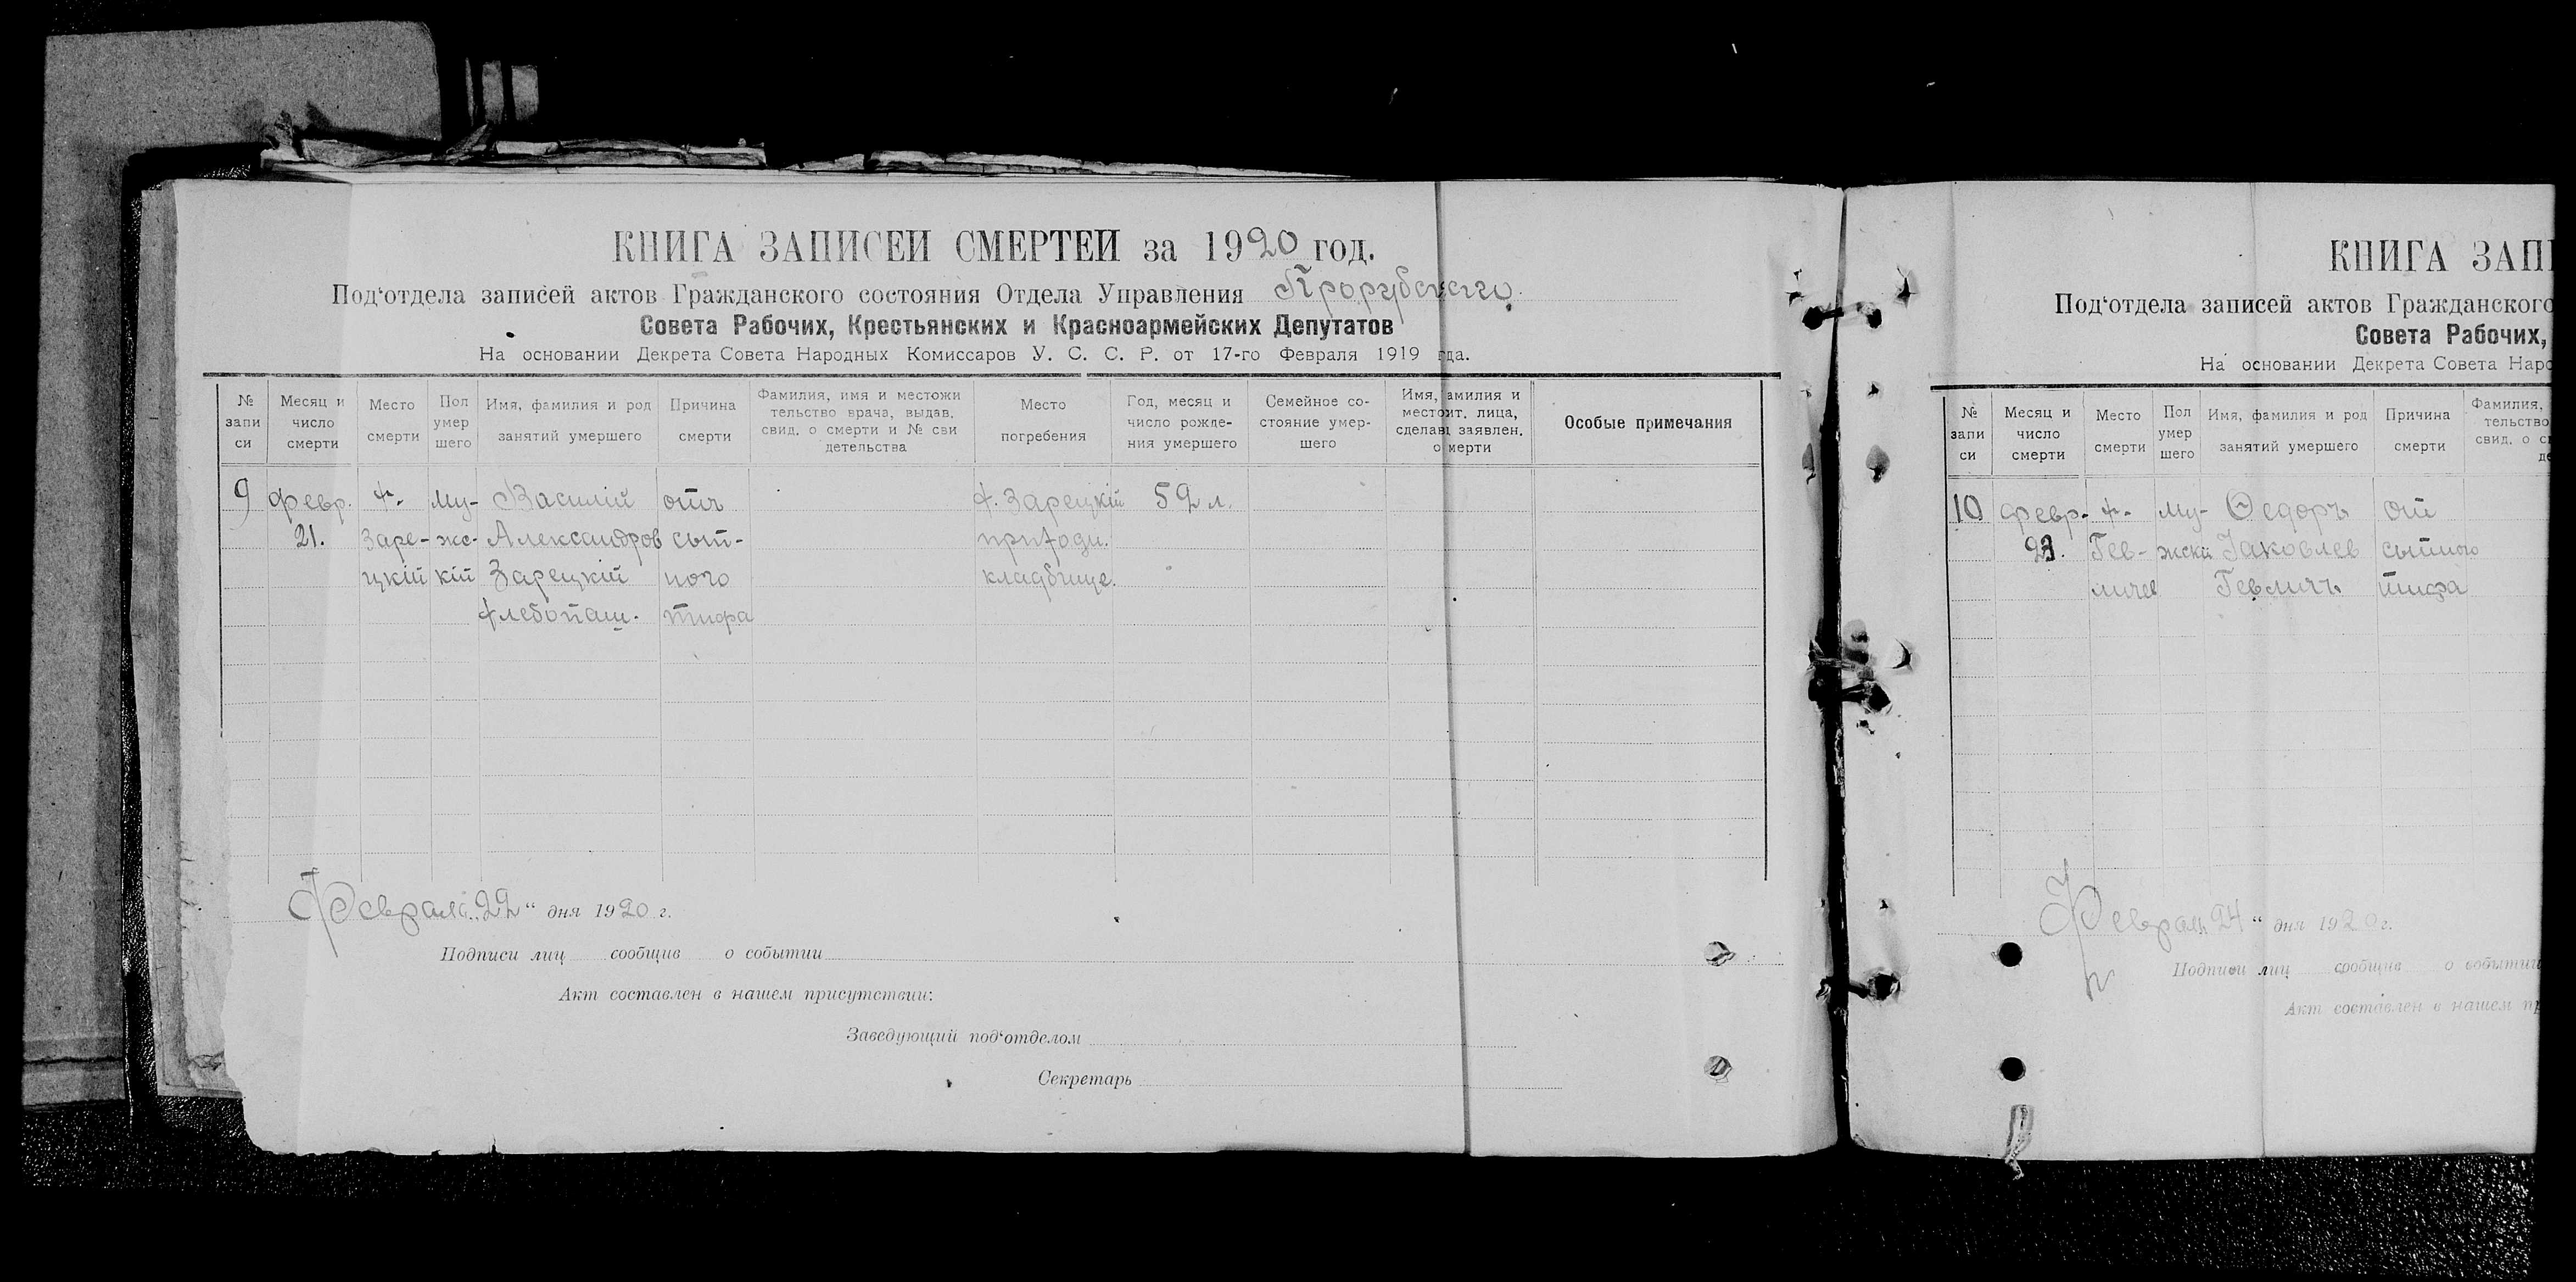 КНИГА ЗАПИСЕЙ СМЕРТЕЙ за 1920 год.
Под'отдела записей актов Гражданского состояния Отдела Управления Прорубского
Совета Рабочих, Крестьянских и Красноармейских Депутатов
На основании Декрета Совета Народных Комиссаров У. С. С. Р. от 17-го Февраля 1919 гда.
№ запи си
Месяц и число смерти
Место смерти
Пол умер шего
Имя, фамилия и род занятий умершего
Причина смерти
Фамилия, имя и местожи тельство врача, выдав, свид. о смерти и № сви детельства
Место погребения
Год, месяц и число рожде- ния умершего
Семейное со- стояние умер- шего
Имя, амилия и местоит. лица, сделавш заявлен. о мерти
Особые примечания
9 февр. х. му- Василій отъ х. Зарецкій 52 л.
21. Заре- жс- Александров сып- приход.
цкій кій Зарецкій ного кладбище.
хлебопаш. тифа
Февраля „22“ дня 1920 г.
Подписи лиц сообщив о событии
Акт составлен в нашем присутствии:
Заведующий под'отделом
Секретарь
КНИГА ЗАПИ
Под'отдела записей актов Гражданского
Совета Рабочих,
На основании Декрета Совета Наро
№ запи си
Месяц и число смерти
Место смерти
Пол умер шего
Имя, фамилия и род занятий умершего
Причина смерти
Фамилия, тельство свид. о с де
10 февр. х. му- Ѳедоръ от
23. Гев- жскій Яковлев сыпного
личев Гевличъ тифа
Февраля „24“ дня 1920 г.
Подписи лиц сообщив о событии
Акт составлен в нашем пр